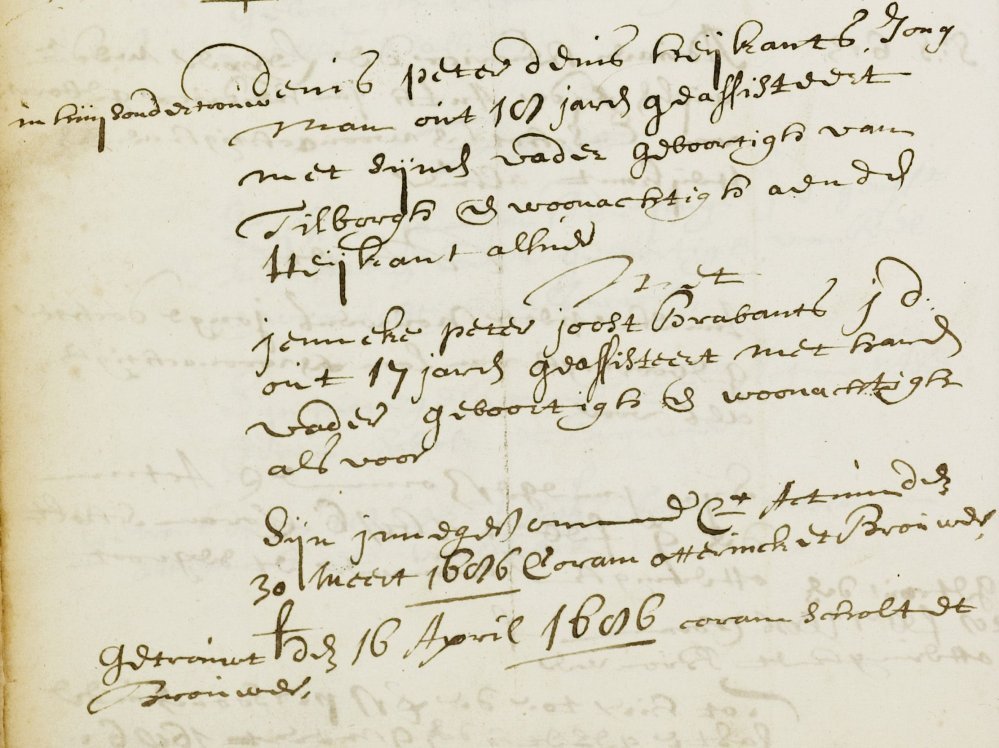 in huijs ondertrouw
Denis peter denis heijkants, Jong
Man out 18 jaren geassisteert
met sijnen vader geboortigh van
Tilborgh en woonachtigh aen den
Heijkant alhier
Met
jenneke peter joost Brabants j d:
out 17 jaren geassisteert met haren
vader geboortigh en woonachtigh
als voor
Sijn inne Actum den
30 Meert 1686 Coram otterinck et Brouwer,
Getrouwt den 16 April 1686 coram scholt et
Brouwer,